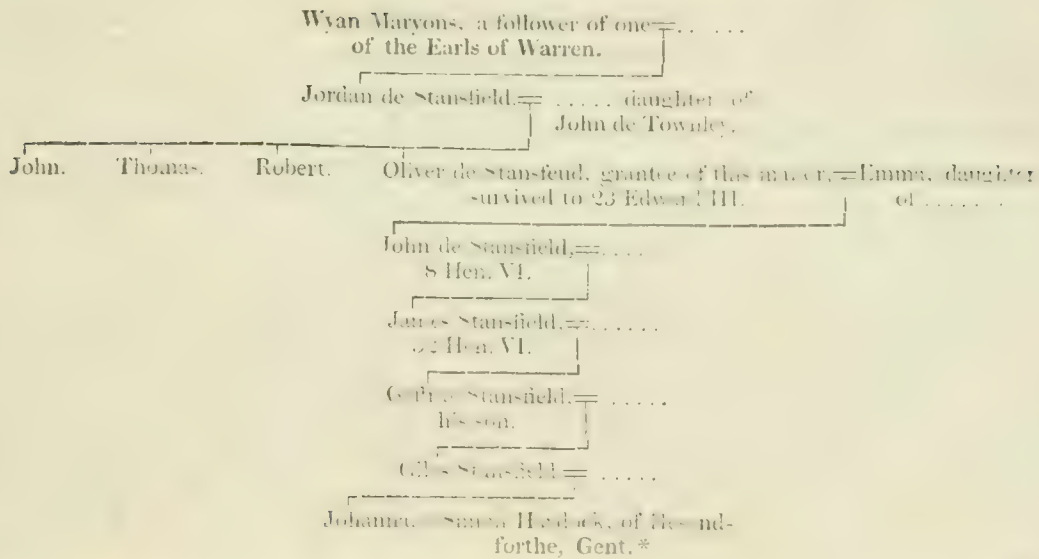 Wyan Maryons, a follower of one = . . . . . .
of the Earls of Warren.
Jordan de Stansfield, = . . . . . daughter of
John de Townley.
John. Thomas. Robert. Oliver de Stansfeud, grantee of this manor, = Emma, daughter
survived to 23 Edward III. of . . . . . . .
John de Stansfield, = . . . .
8 Hen. VI.
James Stansfield, = . . . . . .
Hen. VI.
Stansfield, = . . . . .
his son.
Stansfield = . . . . .
of
forthe, Gent.*